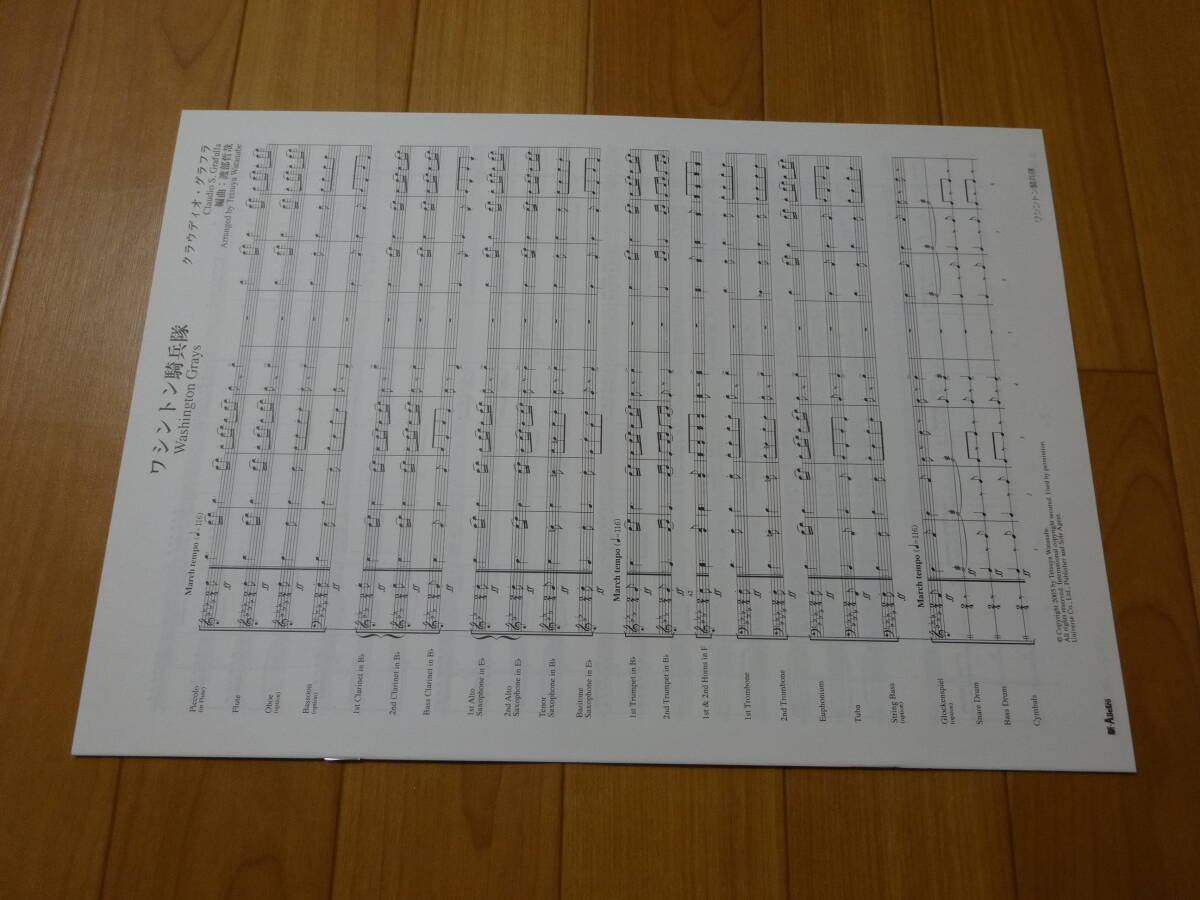 ワシントン騎兵隊
Washington Grays
クラウディオ・グラフラ
Claudio S. Grafulla
編曲：渡部哲哉
Arranged by Tetsuya Watanabe
March tempo (♩=116)
Piccolo
(or Flute)
Flute
Oboe
(option)
Bassoon
(option)
1st Clarinet in B♭
2nd Clarinet in B♭
Bass Clarinet in B♭
1st Alto
Saxophone in E♭
2nd Alto
Saxophone in E♭
Tenor
Saxophone in B♭
Baritone
Saxophone in E♭
March tempo (♩=116)
1st Trumpet in B♭
2nd Trumpet in B♭
1st & 2nd Horns in F
a2
1st Trombone
2nd Trombone
Euphonium
Tuba
String Bass
(option)
March tempo (♩=116)
Glockenspiel
(option)
Snare Drum
Bass Drum
Cymbals
© Copyright 2005 by Tetsuya Watanabe.
All rights reserved. International copyright secured. Used by permission.
Universe Co., Ltd., Publisher and Sole Agent.
ワシントン騎兵隊